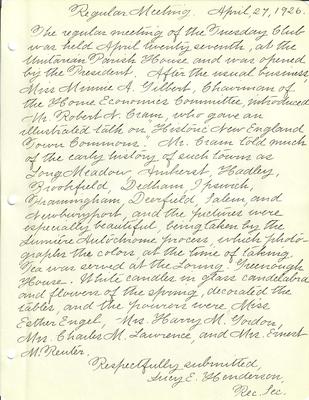 Regular Meeting. April 27, 1926.
The regular meeting of the Tuesday Club
was held April twenty seventh, at the
Unitarian Parish House and was opened
by the President. After the usual business,
Miss Minnie A. Gilbert, Chairman of
the Home Economics Committee, introduced
Mr. Robert N. Cram, who gave an
illustrated talk on "Historic New England
Town Commons." Mr. Cram told much
of the early history of such towns as
Long Meadow, Amherst, Hadley,
Brookfield, Dedham, Ipswich,
Framingham, Deerfield, Salem, and
Newburyport, and the pictures were
especially beautiful, being taken by the
Lumière Autochrome process, which photo-
graphs the colors at the time of taking.
Tea was served at the Loring-Greenough
House. White candles in glass candelabra
and flowers of the spring, decorated the
tables, and the pourers were Miss
Esther Engel, Mrs. Harry M. Gordon,
Mrs. Charles M. Lawrence, and Mrs. Ernest
M. Reuter.
Respectfully submitted,
Lucy E. Henderson,
Rec. Sec.